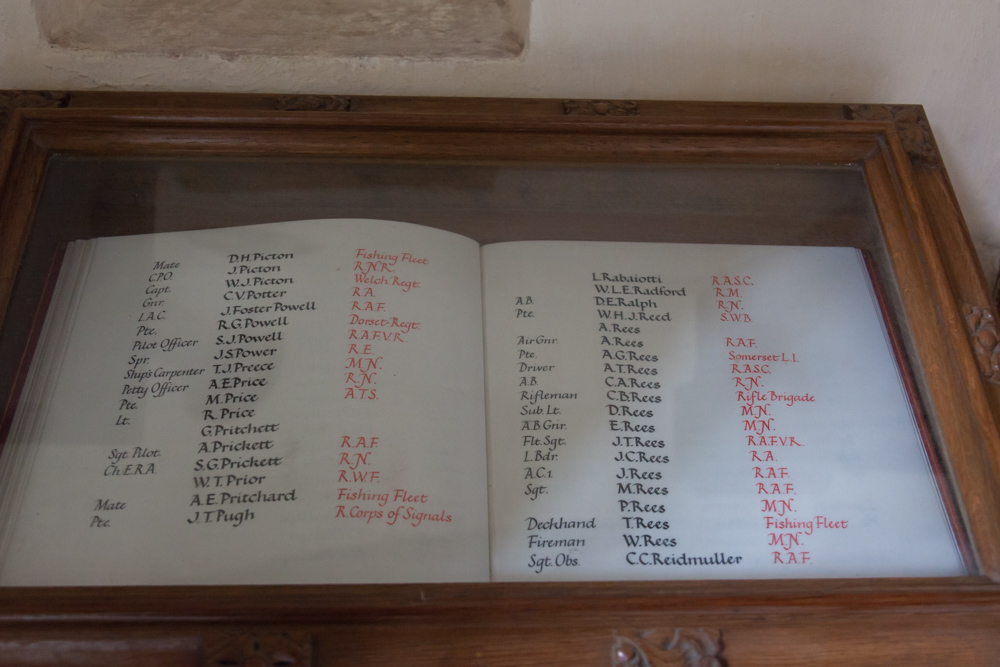 Mate D.H.Picton Fishing Fleet
C.P.O. J.Picton R.N.R.
Capt. W.J.Picton Welch Regt.
Gnr. C.V.Potter R.A.
L.A.C. J.Foster Powell R.A.F.
Pte. R.G.Powell Dorset-Regt.
Pilot Officer S.J.Powell R.A.F.V.R.
Spr. J.S.Power R.E.
Ship's Carpenter T.J.Preece M.N.
Petty Officer A.E.Price R.N.
Pte. M.Price A.T.S.
Lt. R.Price
G.Pritchett
Sgt. Pilot. A.Prickett R.A.F.
Ch.E.R.A. S.G.Prickett R.N.
W.T.Prior R.W.F.
Mate A.E.Pritchard Fishing Fleet
Pte. J.T.Pugh R.Corps of Signals
L.Rabaiotti R.A.S.C.
W.L.E.Radford R.M.
A.B. D.E.Ralph R.N.
Pte. W.H.J.Reed S.W.B.
A.Rees
Air Gnr. A.Rees R.A.F.
Pte. A.G.Rees Somerset L.I.
Driver A.T.Rees R.A.S.C.
A.B. C.A.Rees R.N.
Rifleman C.B.Rees Rifle Brigade
Sub. Lt. D.Rees M.N.
A.B Gnr. E.Rees M.N.
Flt. Sgt. J.T.Rees R.A.F.V.R.
L.Bdr. J.C.Rees R.A.
A.C.1 J.Rees R.A.F.
Sgt. M.Rees R.A.F.
P.Rees M.N.
Deckhand T.Rees Fishing Fleet
Fireman W.Rees M.N.
Sgt. Obs. C.C.Reidmuller R.A.F.